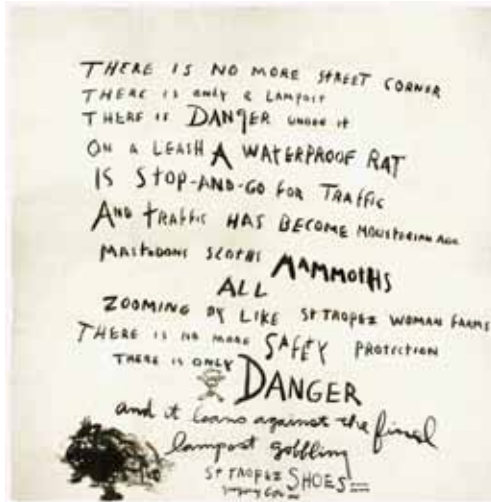 THERE IS NO MORE STREET CORNER
THERE IS only a LAMPOST
THERE IS DANGER UNDER it
ON A LEASH A WATERPROOF RAT
IS STOP-AND-GO FOR TRAFFIC
AND TRAFFIC HAS BECOME MOUSTERIAN AGE
MASTODONS SLOTHS MAMMOTHS
ALL
ZOOMING BY LIKE ST TROPEZ WOMAN FARMS
THERE IS NO MORE SAFETY PROTECTION
THERE IS ONLY
DANGER
and it leans against the final
lampost gobbling
ST TROPEZ SHOES